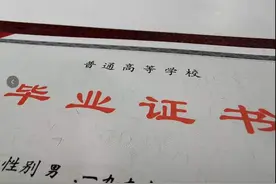 普通高等学校
毕业证书
性别男,一九